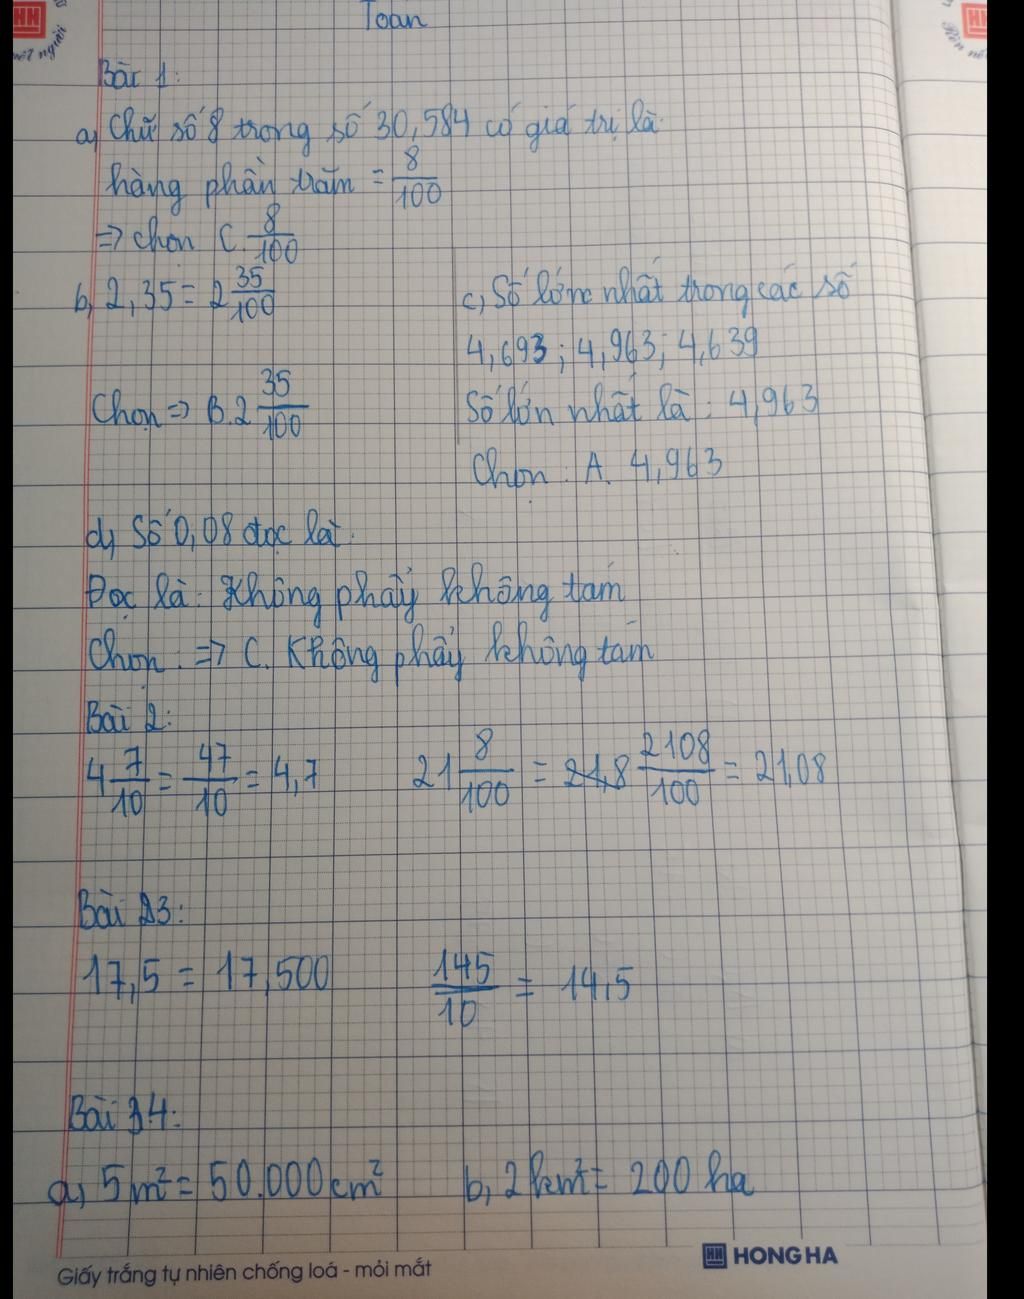 Toan
Bài 1:
a, Chữ số 8 trong số 30,584 có giá trị là
hàng phần trăm = 8/100
=> chọn C. 8/100
b, 2,35 = 2 35/100
Chọn => B. 2 35/100
c, Số lớn nhất trong các số
4,693; 4,963; 4,639
Số lớn nhất là: 4,963
Chọn: A. 4,963
d, Số 0,08 đọc là:
Đọc là: Không phẩy không tám
Chọn: => C. Không phẩy không tám
Bài 2:
4 7/10 = 47/10 = 4,7
21 8/100 = 21,8 2108/100 = 21,08
Bài 3:
17,5 = 17,500
145/10 = 14,5
Bài 4:
a, 5m² = 50.000cm²
b, 2km² = 200 ha
HH HONG HA
Giấy trắng tự nhiên chống loá - mỏi mắt